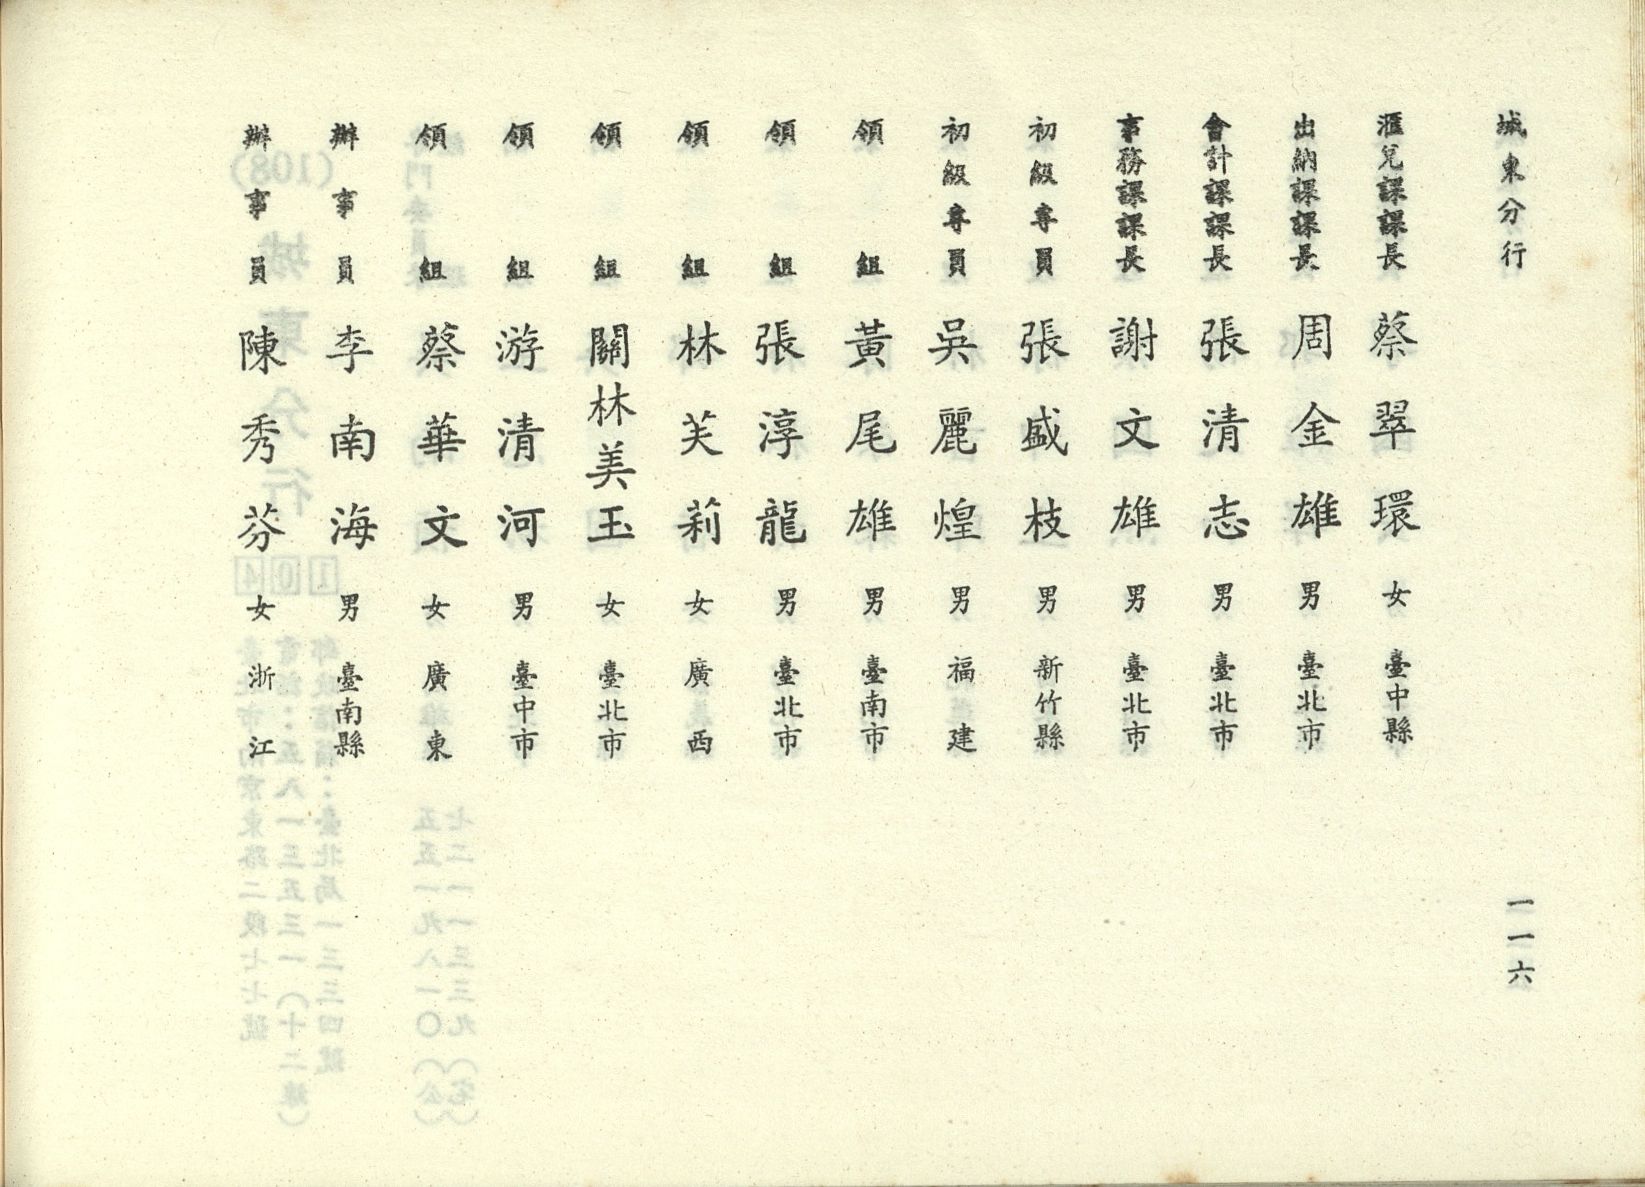 城東分行
滙兌課課長 蔡翠環 女 臺中縣
出納課課長 周金雄 男 臺北市
會計課課長 張清志 男 臺北市
事務課課長 謝文雄 男 臺北市
初級專員 張盛枝 男 新竹縣
初級專員 吳麗煌 男 福建
領組 黃尾雄 男 臺南市
領組 張淳龍 男 臺北市
領組 林芙莉 女 廣西
領組 關林美玉 女 臺北市
領組 游清河 男 臺中市
領組 蔡華文 女 廣東
辦事員 李南海 男 臺南縣
辦事員 陳秀芬 女 浙江
一一六